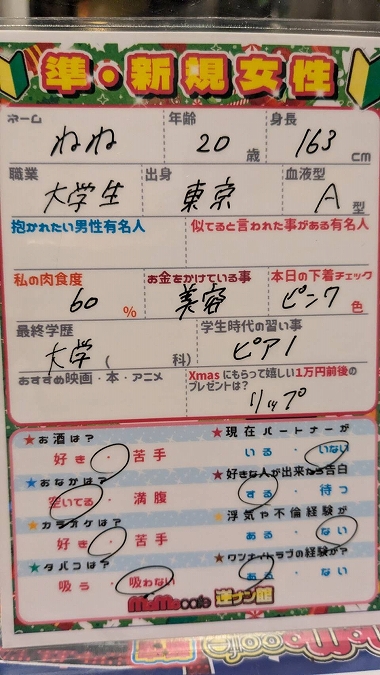 準・新規女性
ネーム 年齢 身長
ねね 20歳 163cm
職業 出身 血液型
大学生 東京 A型
抱かれたい男性有名人 似てると言われた事がある有名人
私の肉食度 お金をかけている事 本日の下着チェック
60% 美容 ピンク色
最終学歴 学生時代の習い事
大学(科) ピアノ
おすすめ映画・本・アニメ Xmasにもらって嬉しい1万円前後の
プレゼントは?
リップ
★お酒は? ★現在パートナーが
好き・苦手 いる・いない
★おなかは? ★好きな人が出来たら告白
空いてる・満腹 する・待つ
★カラオケは? ★浮気や不倫経験が
好き・苦手 ある・ない
★タバコは? ★ワンナイトラブの経験が?
吸う・吸わない ある・ない
MoMocafe 逆ナン館